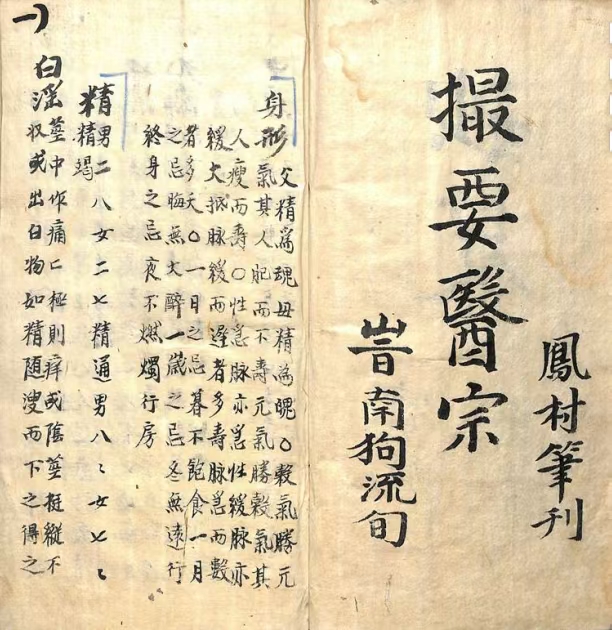 鳳村筆刊
撮要醫宗
旹南狗流旬
身形 父精爲魂母精爲魄〇穀氣勝元
氣其人肥而不壽元氣勝穀氣其
人瘦而壽〇性急脉亦急性緩脉亦
緩大抵脉緩而遲者多壽脉急而數
者多夭〇一日之忌暮不飽食一月
之忌晦無大醉一歲之忌冬無遠行
終身之忌夜不燃燭行房
精 男二八女二七精通男八〻女七〻
精竭
白淫 莖中作痛〻極則痒或陰莖挺縱不
収或出白物如精随溲而下之得之
一)